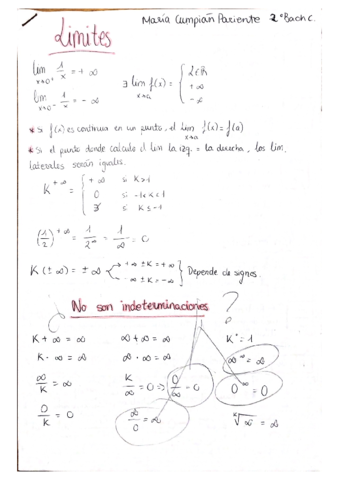 María Cumpián Pariente 2º Bach C.
Límites
lim x→0⁺ 1/x = +∞
lim x→0⁻ 1/x = -∞
∃ lim x→a f(x) = { L∈ℝ
+∞
-∞
* Si f(x) es continua en un punto, el lim x→a f(x) = f(a)
* Si el punto donde calculo el lim la izq. = la derecha, los lim.
laterales serán iguales.
K^+∞ = { +∞ si K>1
0 si -1<K<1
∄ si K≤-1
(1/2)^+∞ = 1/2^∞ = 1/∞ = 0
K(±∞) = ±∞ +∞ ±K = +∞
-∞ ±K = -∞ } Depende de signos.
No son indeterminaciones ?
K + ∞ = ∞ ∞ + ∞ = ∞ K⁰ = 1
K · ∞ = ∞ ∞ · ∞ = ∞ ∞^∞ = ∞
∞/K = ∞ K/∞ = 0 => 0/∞ = 0 0^∞ = 0
0/K = 0 ∞/0 = ∞ ᴷ√∞ = ∞